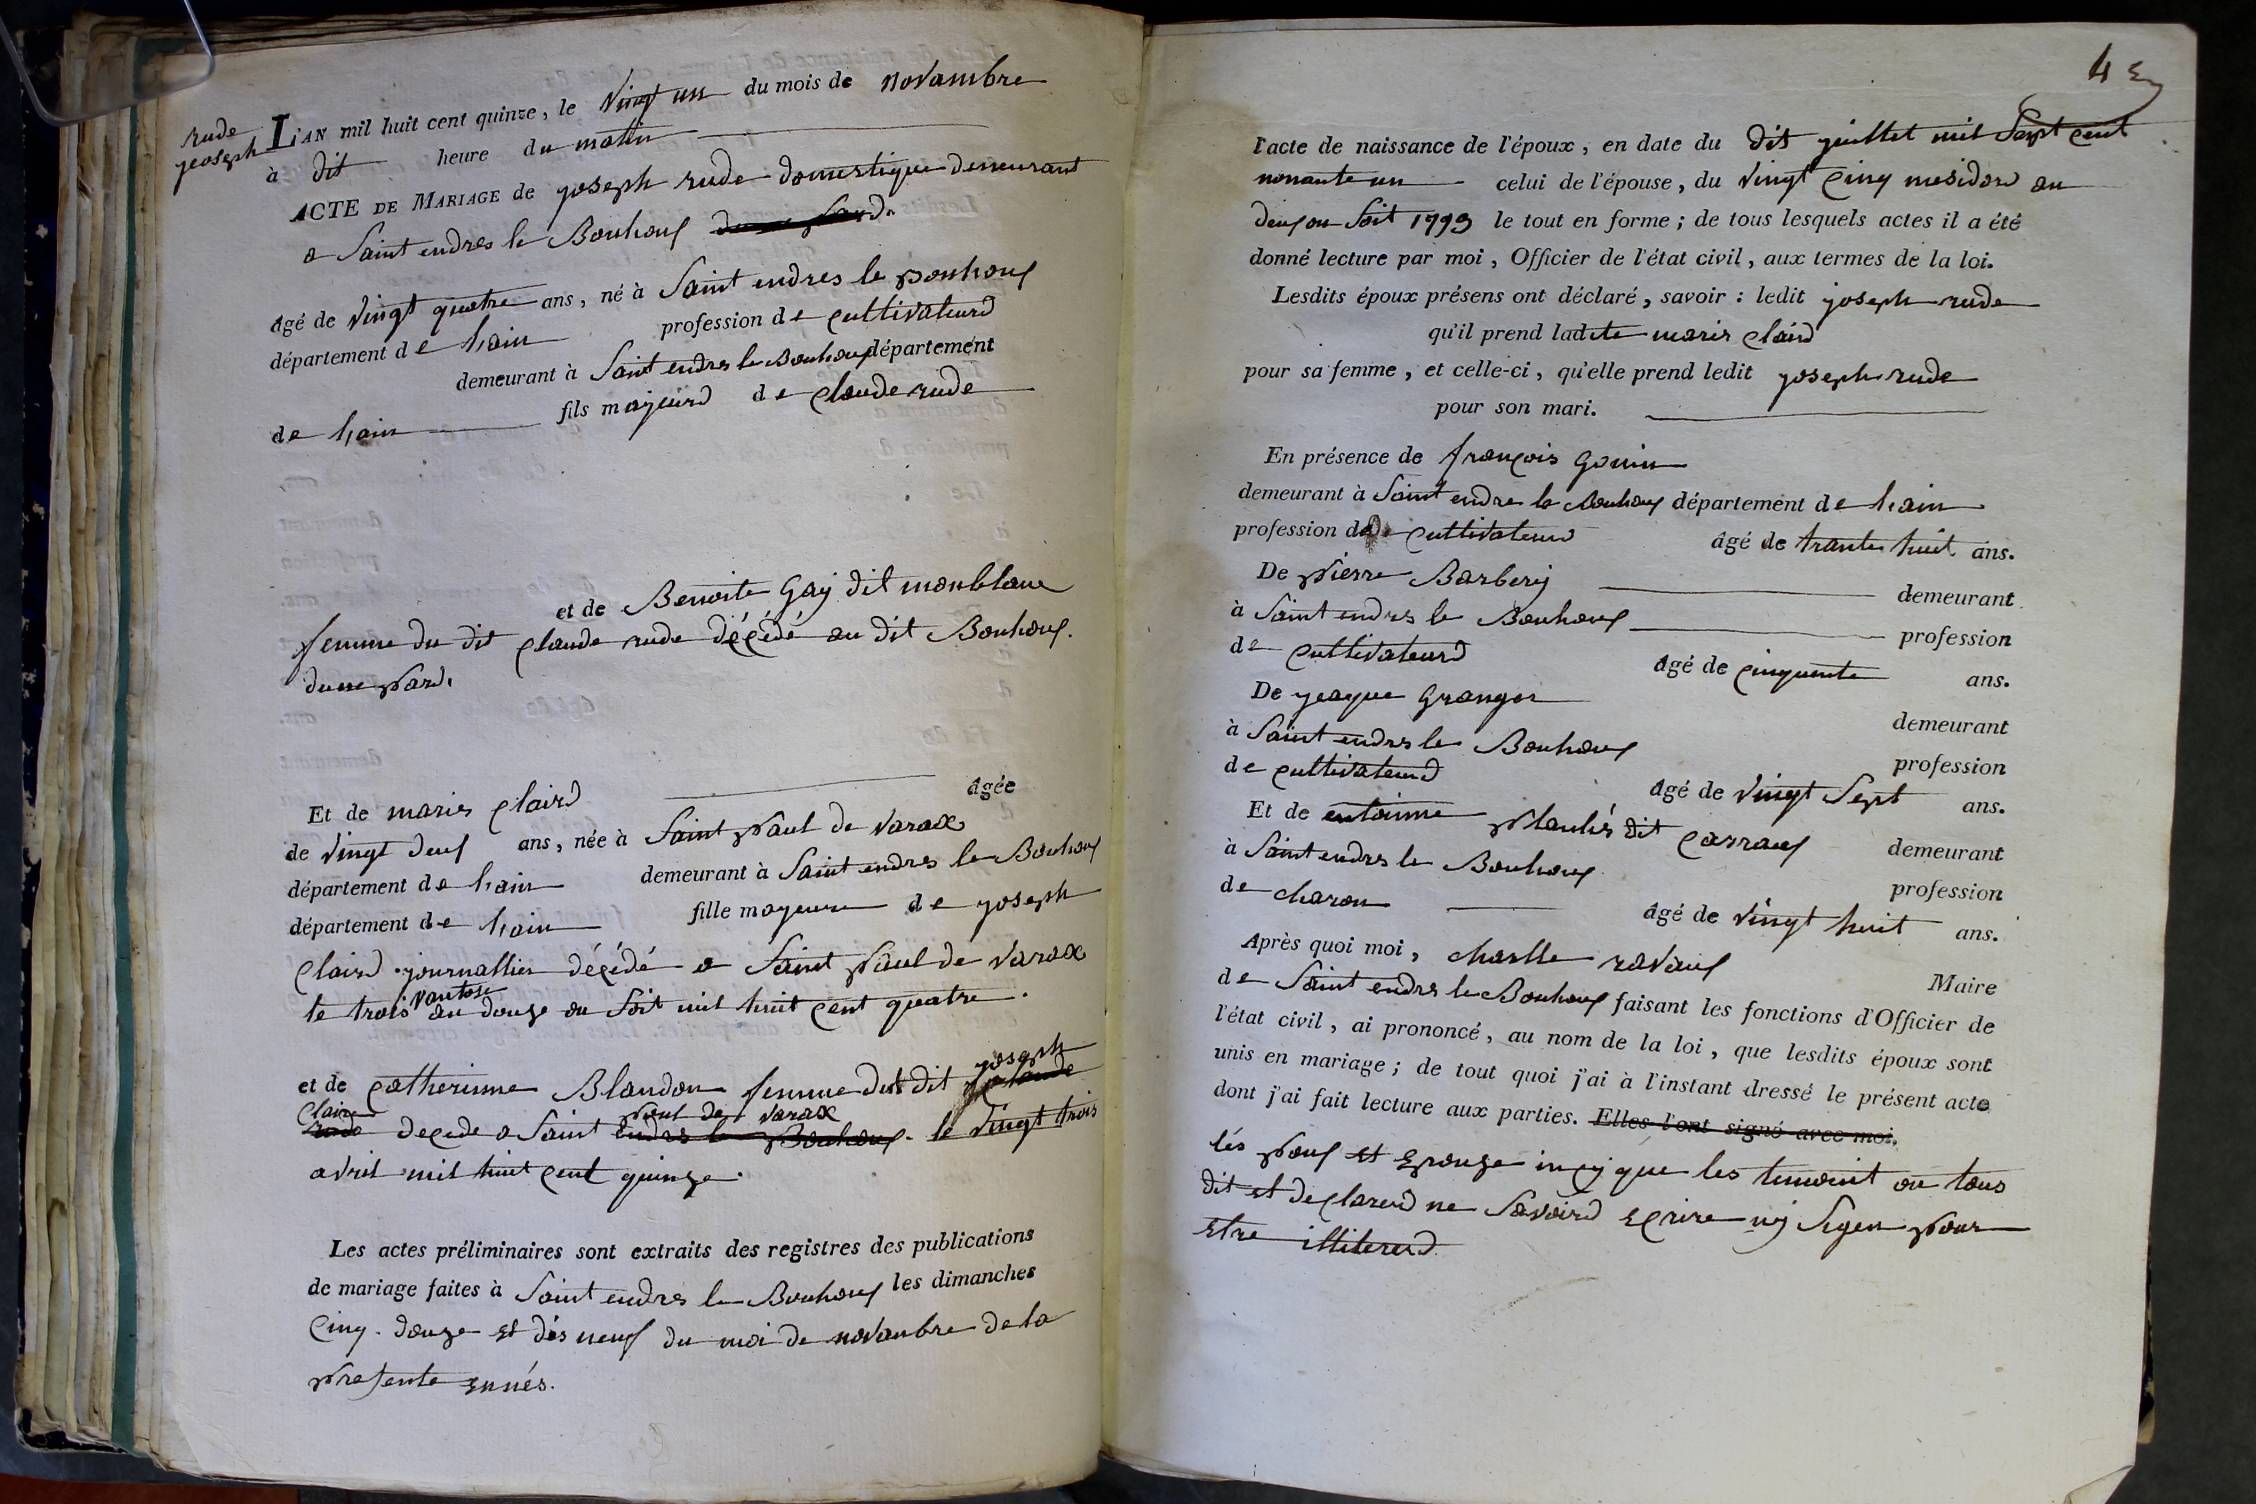 rude
yeoseph
L'AN mil huit cent quinze, le vingt un du mois de novambre
à dit heure du matin
ACTE DE MARIAGE de yoseph rude domestique demeurant
a Saint endres le Bouhouf
âgé de vingt quatre ans, né à Saint endres le Bouhouf
département de hain profession de cultivateurd
demeurant à Saint endres le Bouhouf département
de hain fils mayeurd de claude rude
et de Benoite Gay dit monblanc
femme du dit claude rude décédé au dit Bouhouf.
dune pard.
Et de maries claird âgée
de vingt deuf ans, née à Saint paul de varax
département de hain demeurant à Saint endres le Bouhouf
département de hain fille mayeure de yoseph
claird journallier décédé a Saint paul de varax
vantose
le trois an douze ou soit mil huit cent quatre.
yoseph
et de catherinne Blandon femme du dit claude
claire paul de varax
rude decede a Saint endres le Bouhouf. le vingt trois
avril mil huit cent quinze.
Les actes préliminaires sont extraits des registres des publications
de mariage faites à Saint endres le Bouhouf les dimanches
cinq. douze et dis neuf du moi de novanbre de la
presente ennés.
4
l'acte de naissance de l'époux, en date du dit juillet mil Sept cent
nonante un celui de l'épouse, du vingt cinq mesidord an
deuf ou soit 1793 le tout en forme; de tous lesquels actes il a été
donné lecture par moi, Officier de l'état civil, aux termes de la loi.
Lesdits époux présens ont déclaré, savoir: ledit yoseph rude
qu'il prend ladite maries claird
pour sa femme, et celle-ci, qu'elle prend ledit yoseph rude
pour son mari.
En présence de françois Gouin
demeurant à Saint endre le Bouhouf département de hain
profession de cultivateurd âgé de trante huit ans.
De pierre Barbery demeurant
à Saint endres le Bouhouf profession
de cultivateurd âgé de cinquente ans.
De yeaque Granger demeurant
à Saint endres le Bouhouf profession
de cultivateurd âgé de vingt Sept ans.
Et de entoinne plantés dit carrauf demeurant
à Saint endres le Bouhouf profession
de charon âgé de vingt huit ans.
Après quoi moi, charlle ravauf Maire
de Saint endres le Bouhouf faisant les fonctions d'Officier de
l'état civil, ai prononcé, au nom de la loi, que lesdits époux sont
unis en mariage; de tout quoi j'ai à l'instant dressé le présent acte
dont j'ai fait lecture aux parties. Elles l'ont signé avec moi.
lés pouf et epouze incy que les temoint on tous
dit et declarerd ne Savoird ecrire ny Sigen pour
etre illitererd.